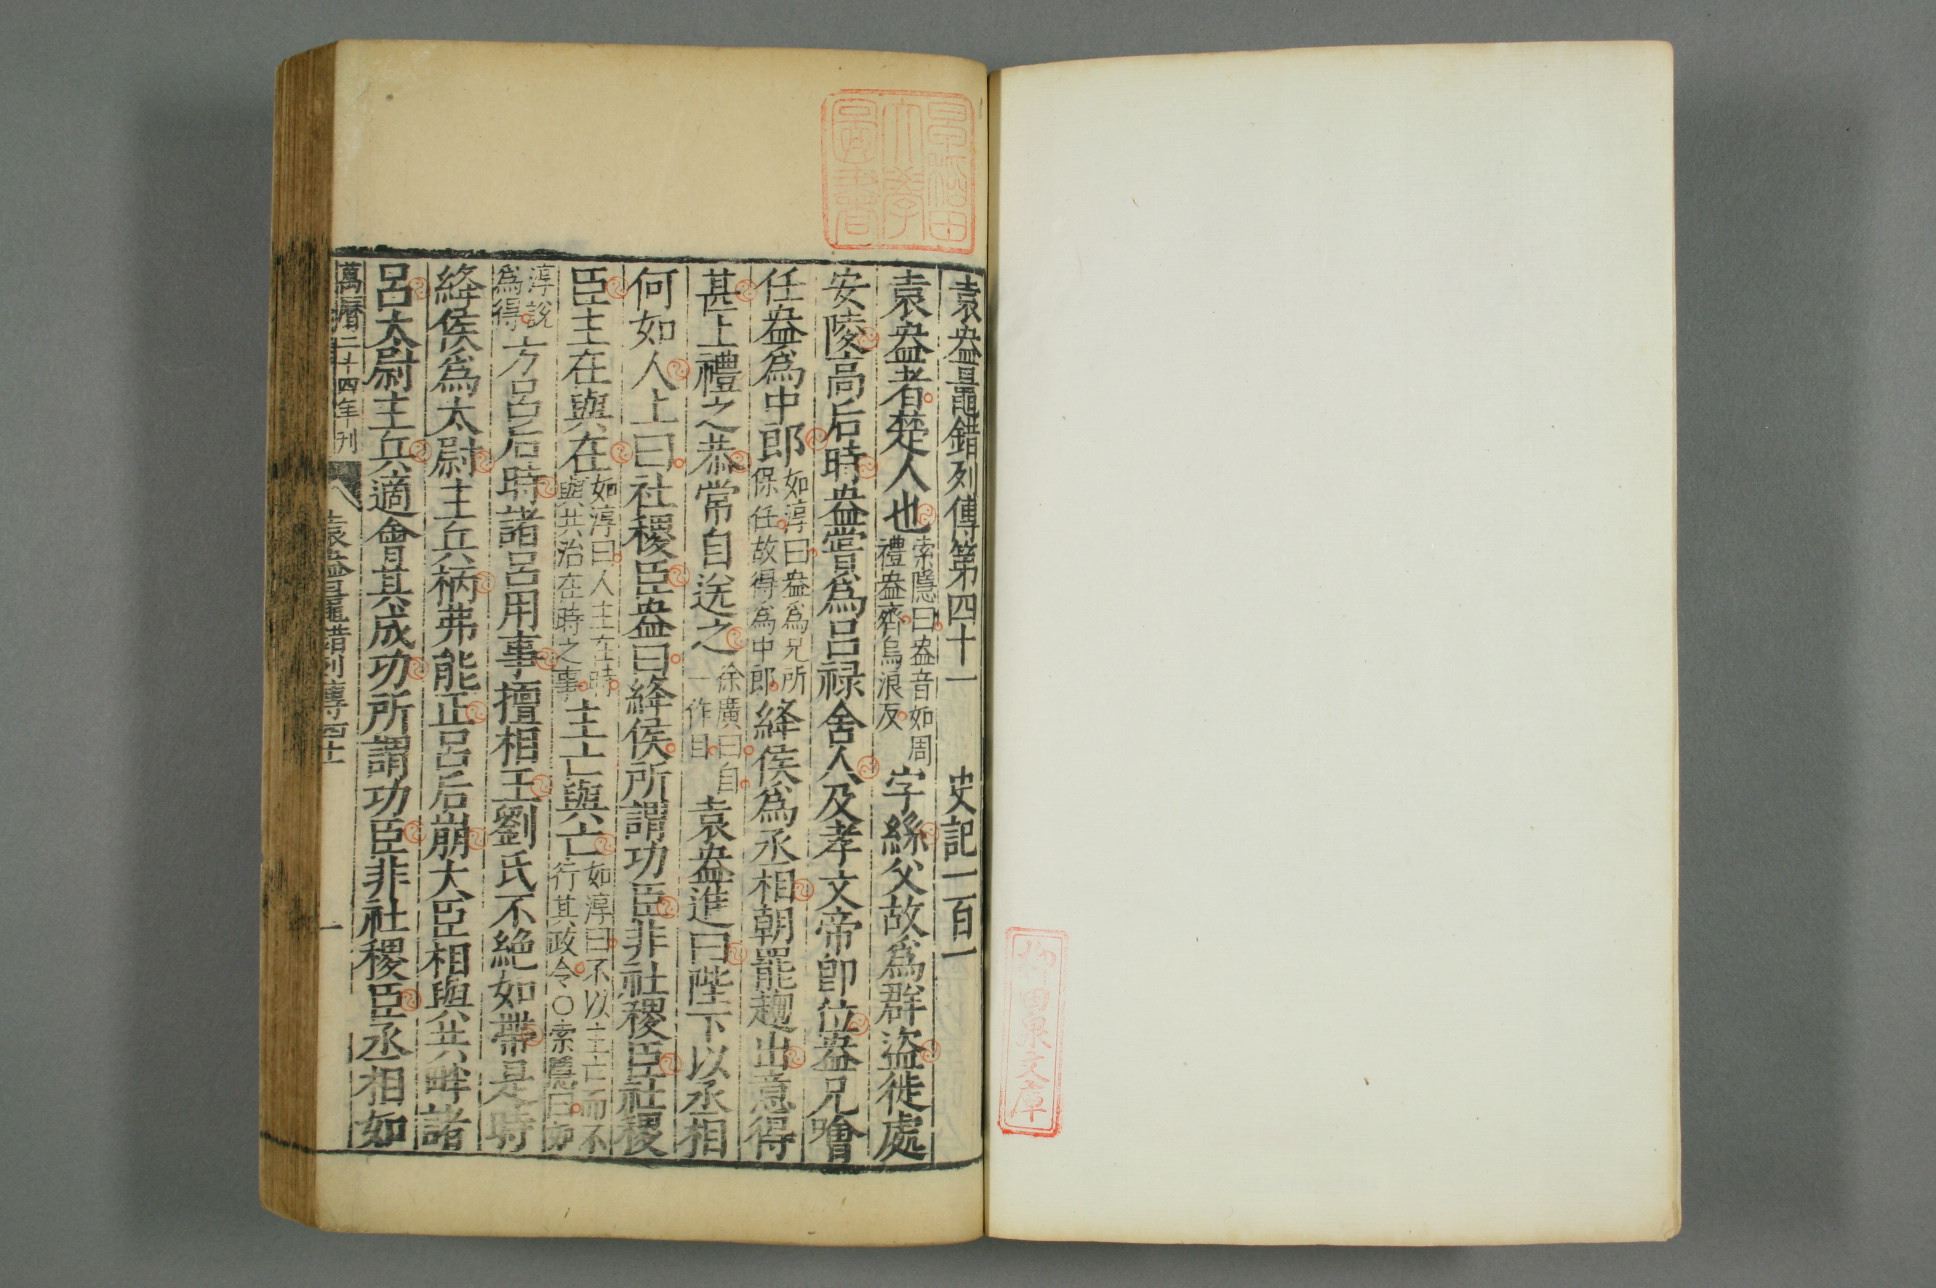 柳田泉文庫
早稲田
大學
圖書
袁盎鼂錯列傳第四十一　史記一百一
袁盎者楚人也索隱曰盎音如周禮盎齊烏浪反字絲父故爲群盜徙處
安陵高后時盎嘗爲呂祿舍人及孝文帝即位盎兄噲
任盎爲中郎如淳曰盎爲兄所保任故得爲中郎絳侯爲丞相朝罷趨出意得
甚上禮之恭常自送之徐廣曰自一作目袁盎進曰陛下以丞相
何如人上曰社稷臣盎曰絳侯所謂功臣非社稷臣社稷
臣主在與在如淳曰人主在時與共治在時之事主亡與亡如淳曰不以主亡而不行其政令○索隱曰如
淳說爲得方呂后時諸呂用事擅相王劉氏不絕如帶是時
絳侯爲太尉主兵柄弗能正呂后崩大臣相與共畔諸
呂太尉主兵適會其成功所謂功臣非社稷臣丞相如
萬曆二十四年刊　袁盎鼂錯列傳四十一　一